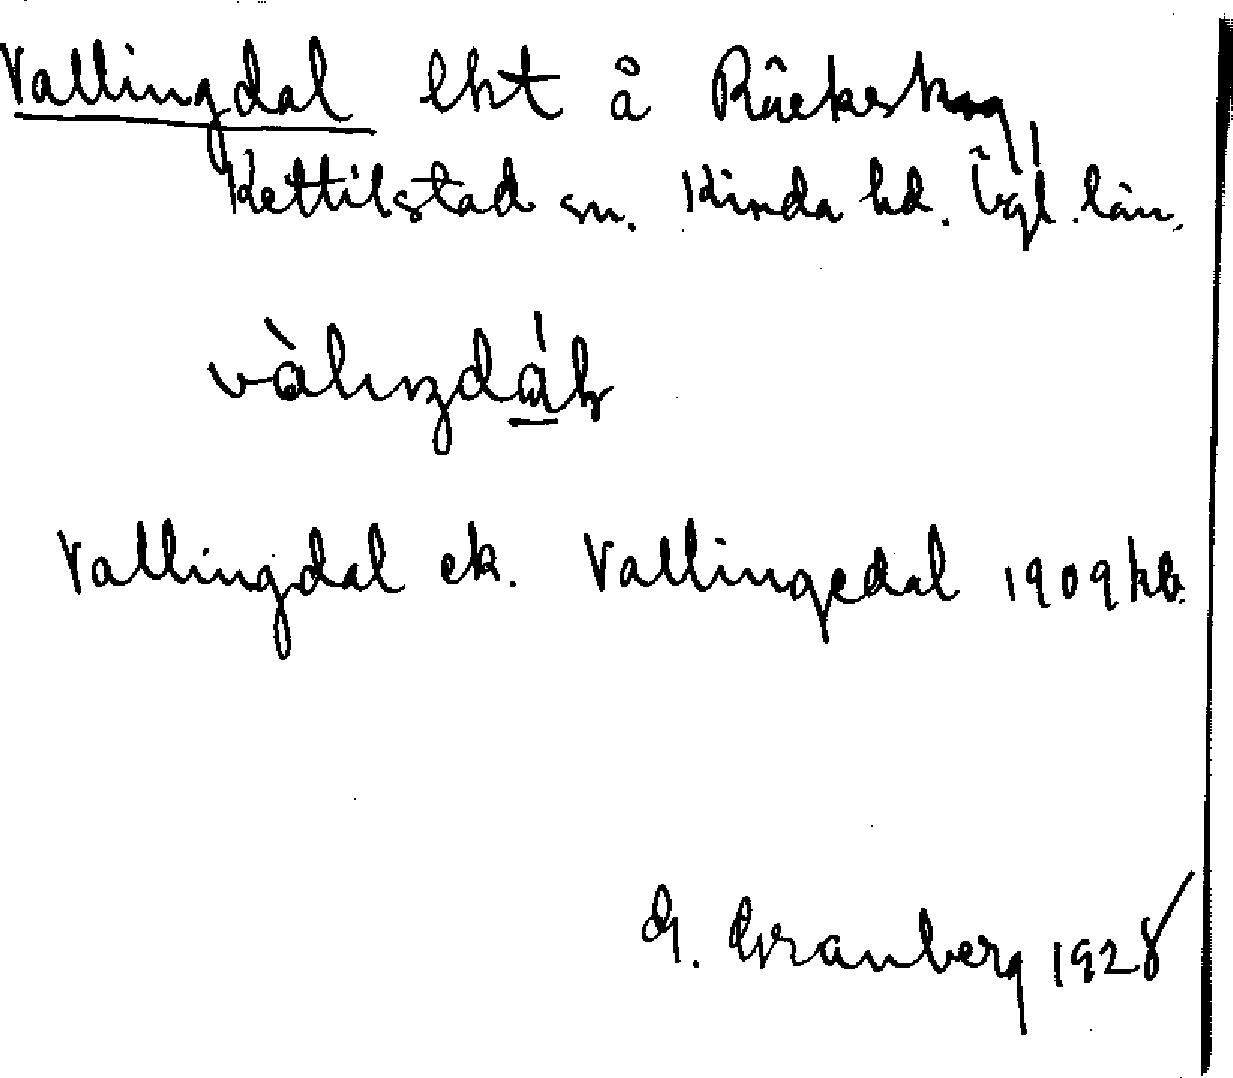 Vallingdal lht å Räckeskog
Kettilstad sn. Kinda hd. Ögl. län.
Vallingdal ek. Vallingedal 1909 kb.
G. Granberg 1928